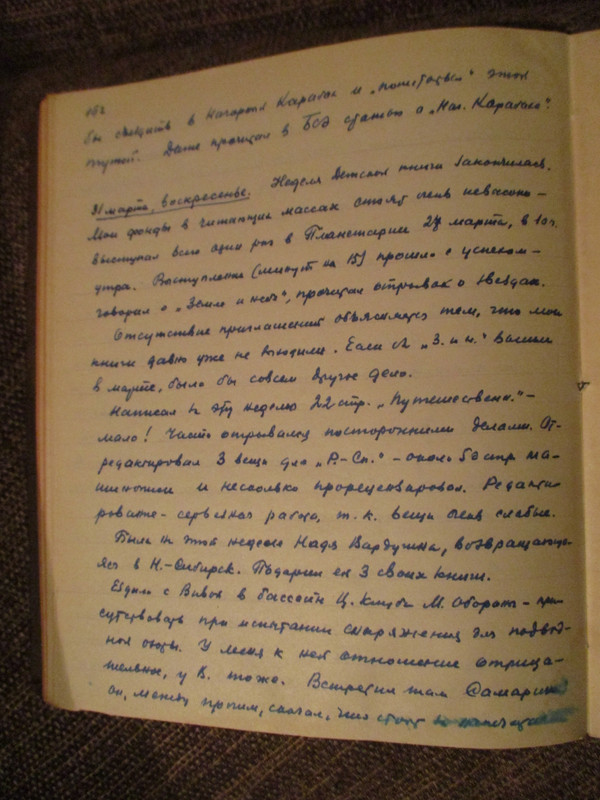 162
бы съездить в Нагорный Карабах и „
Даже прочитал в БСЭ статью о „Наг. Карабахе".
31 марта, воскресенье. Неделя Детской книги закончилась.
Мои фонды в читающих массах стоят очень невысоко –
выступал всего один раз в Планетарии 27 марта, в 10 ч.
утра. Выступление (минут на 15) прошло с успехом –
говорил о „Земле и небе", прочитал отрывок о звездах.
Отсутствие приглашений объясняется тем, что мои
книги давно уже не выходили. Если бы „З. и н." вышли
в марте, было бы совсем другое дело.
Написал за эту неделю 22 стр. „Путешествен." –
мало! Часто отрывался посторонними делами. От-
редактировал 3 вещи для „Р.-Сп." – около 50 стр. ма-
шинописи и несколько прорецензировал. Редакти-
рование – серьезная работа, т. к. вещи очень слабые.
Была на этой неделе Надя Вардугина, возвращающа-
яся в Н.-Сибирск. Подарил ей 3 своих книги.
Ездили с Вивой в бассейн Ц. Клуба М. Обороны – при-
сутствовать при испытании снаряжения для подвод-
ной охоты. У меня к ней отношение отрица-
тельное, у В. тоже. Встретил там Самарина
он, между прочим, сказал, что